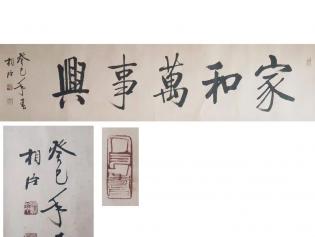 家和萬事興
癸巳年春
相
癸巳年
相